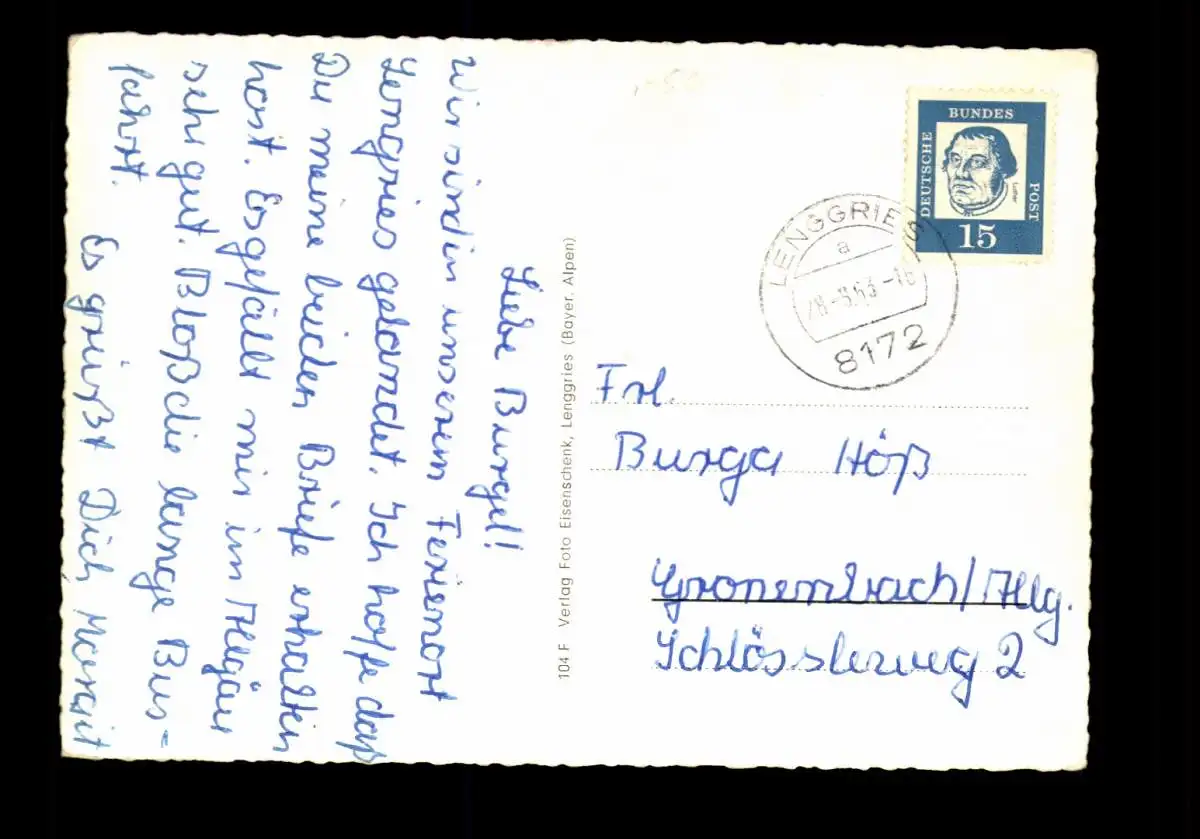 Liebe Burgel!
Wir sind in unserem Ferienort
Lenggries gelandet. Ich hoffe daß
Du meine beiden Briefe erhalten
hast. Es gefällt mir im Allgäu
sehr gut. Bloß die lange Bus-
fahrt.
Es grüßt Dich Margit
104 F Verlag Foto Eisenschenk, Lenggries (Bayer. Alpen)
DEUTSCHE BUNDES POST
Luther
15
LENGGRIES
a
28.-8.63-16
8172
Frl.
Burga Höß
Gronenbach/Allg.
Schlössleweg 2